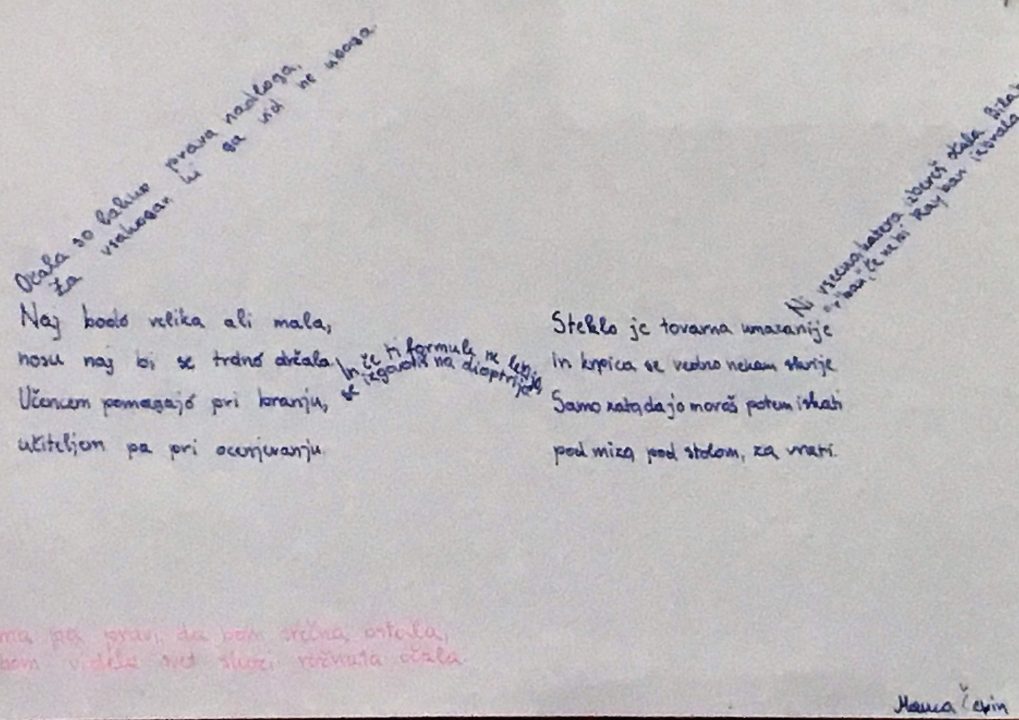 Očala so lahko prava nadloga,
za vsakogar ki ga vid ne uboga.
Naj bodo velika ali mala,
nosu naj bi se trdno držala.
Učencem pomagajo pri branju,
učiteljem pa pri ocenjevanju.
In če ti formule ne letijo,
se izgovoriš na dioptrijo.
Steklo je tovarna umazanije
in krpica se vedno nekam skrije
Samo zato, da jo moraš potem iskati
pod mizo, pod stolom, za vrati.
Ni vseeno katera izbereš očala
če ne bi Ray ban izbrala
ma pa pravi, da bom srečna ostala,
bom videla svet skozi rožnata očala.